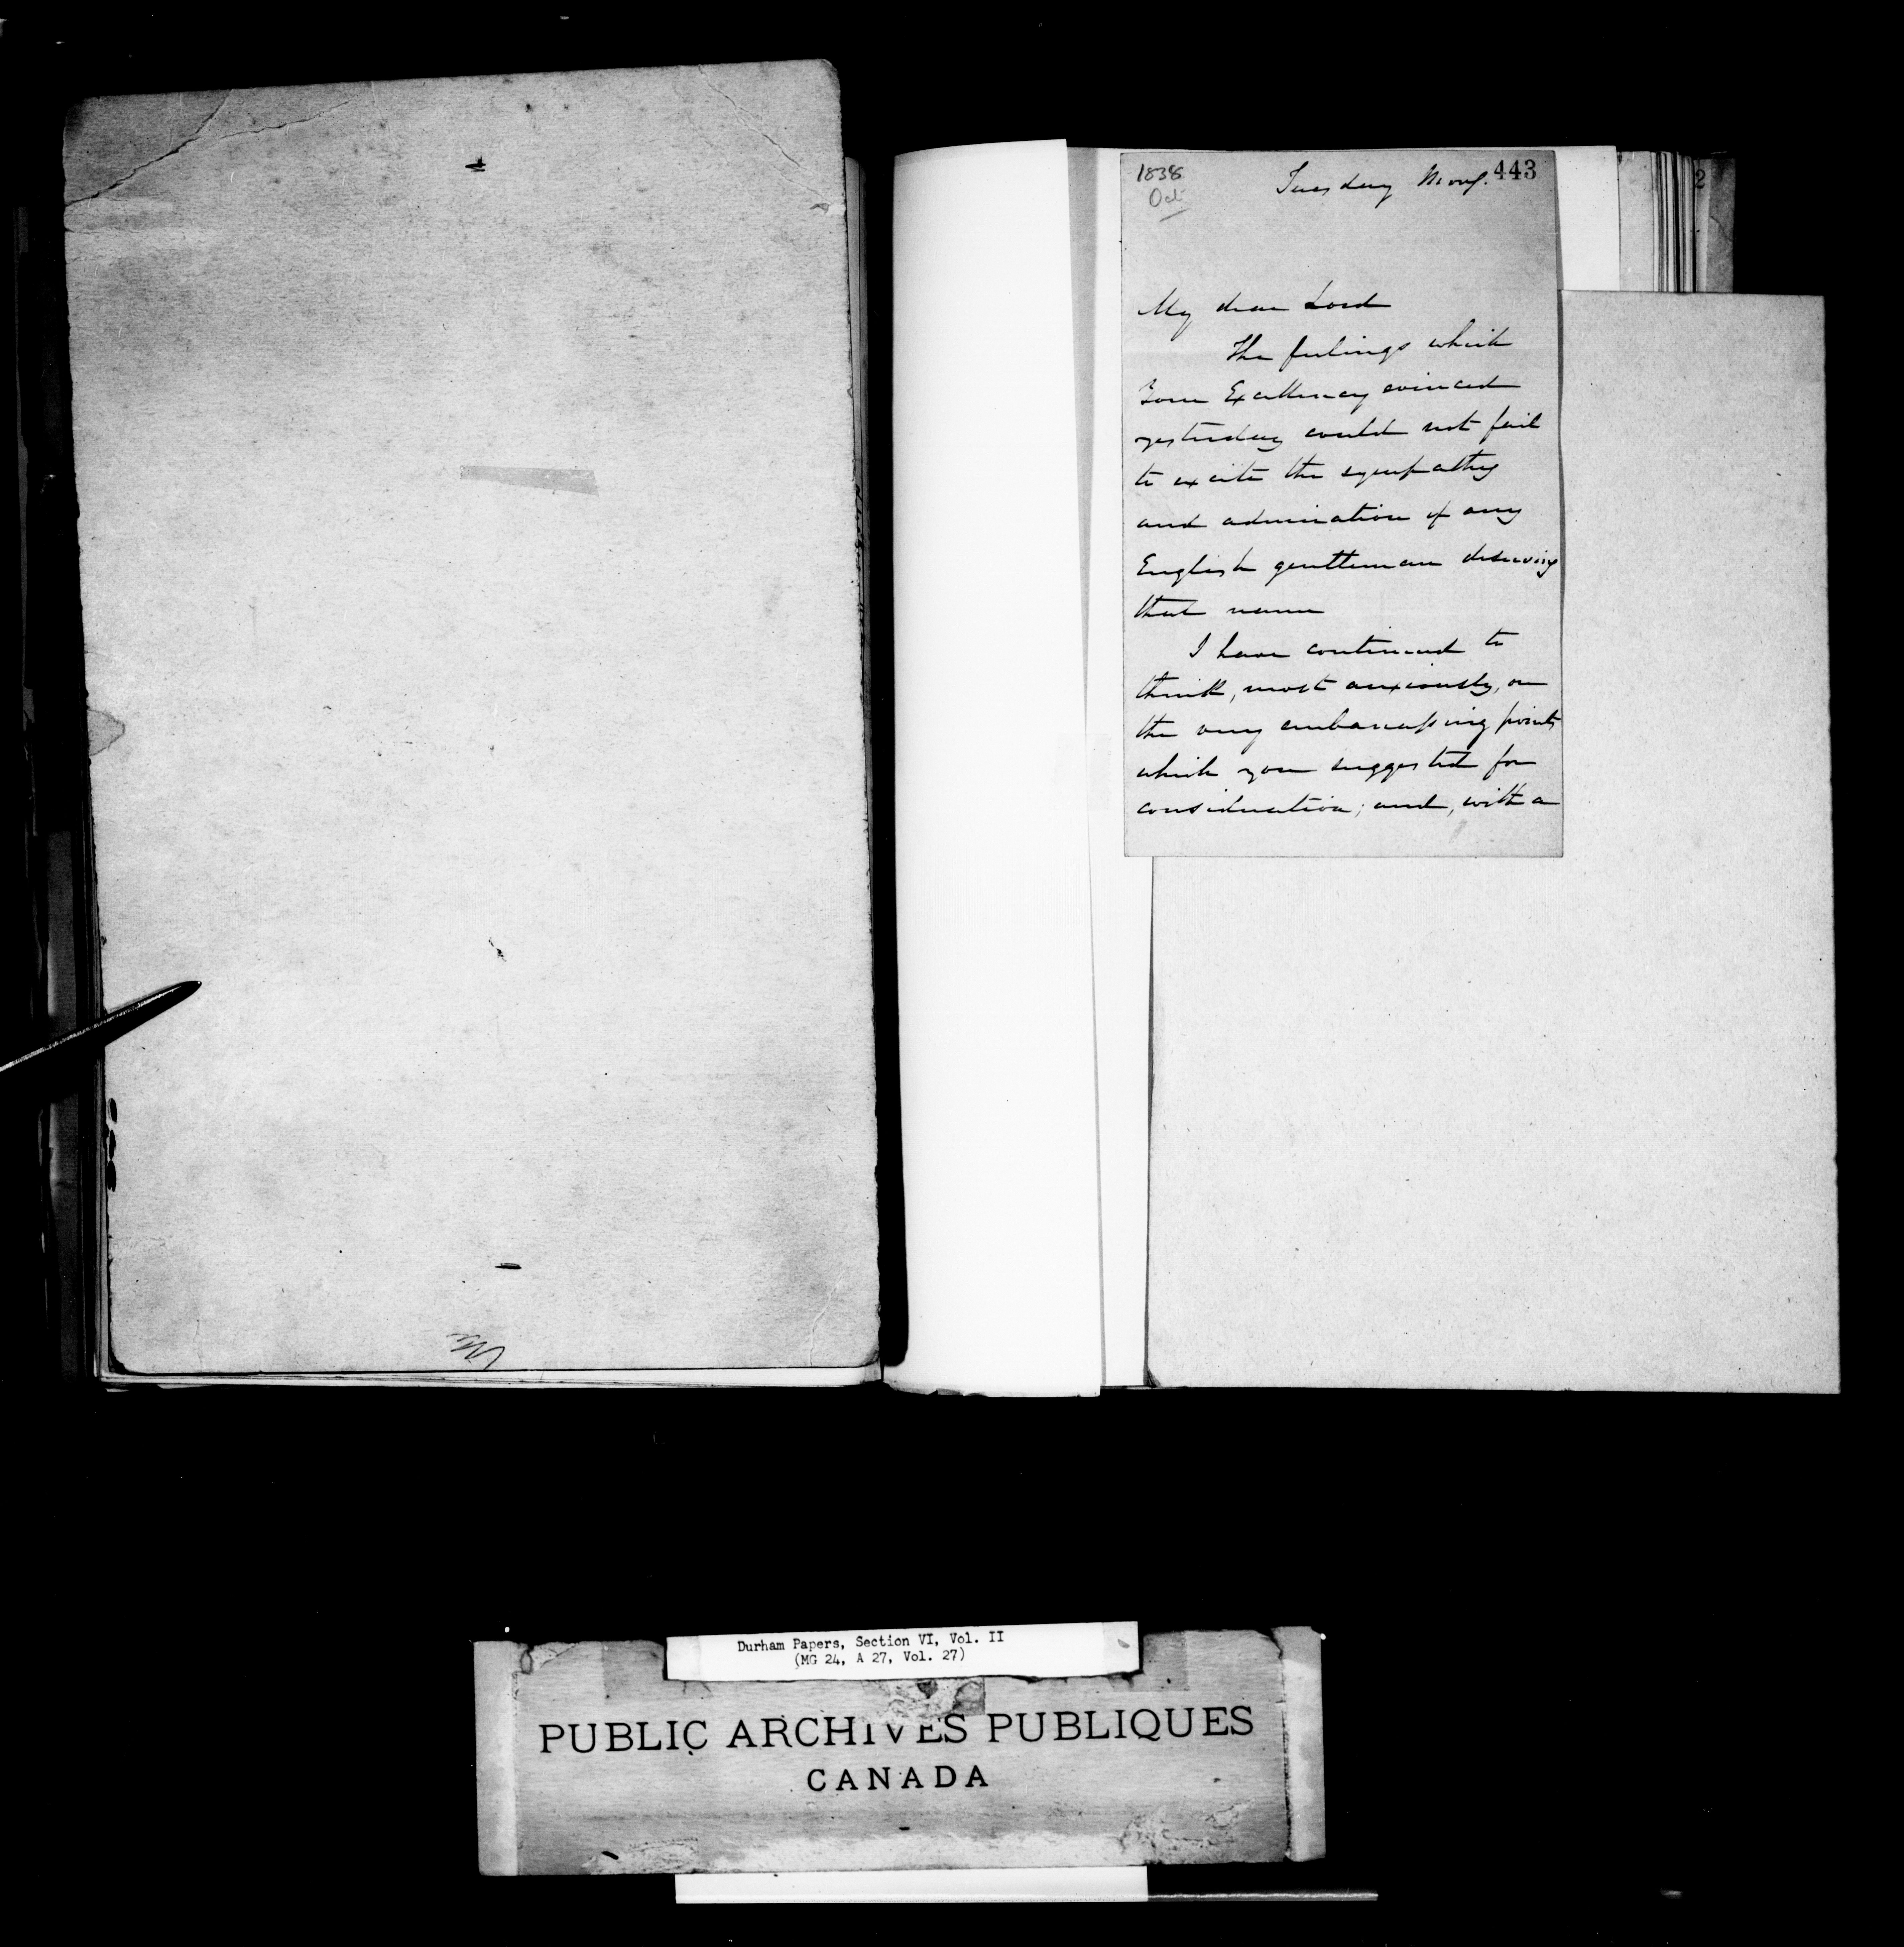 1838
Oct
Tuesday Morng.
443
2
My dear Lord
The feelings which
Your Excellency evinced
yesterday could not fail
to excite the sympathy
and admiration of any
English gentleman deserving
that name
I have continued to
think, most anxiously, on
the very embarassing points
which you suggested for
consideration; and, with a
Durham Papers, Section VI, Vol. II
(MG 24, A 27, Vol. 27)
PUBLIC ARCHIVES PUBLIQUES
CANADA